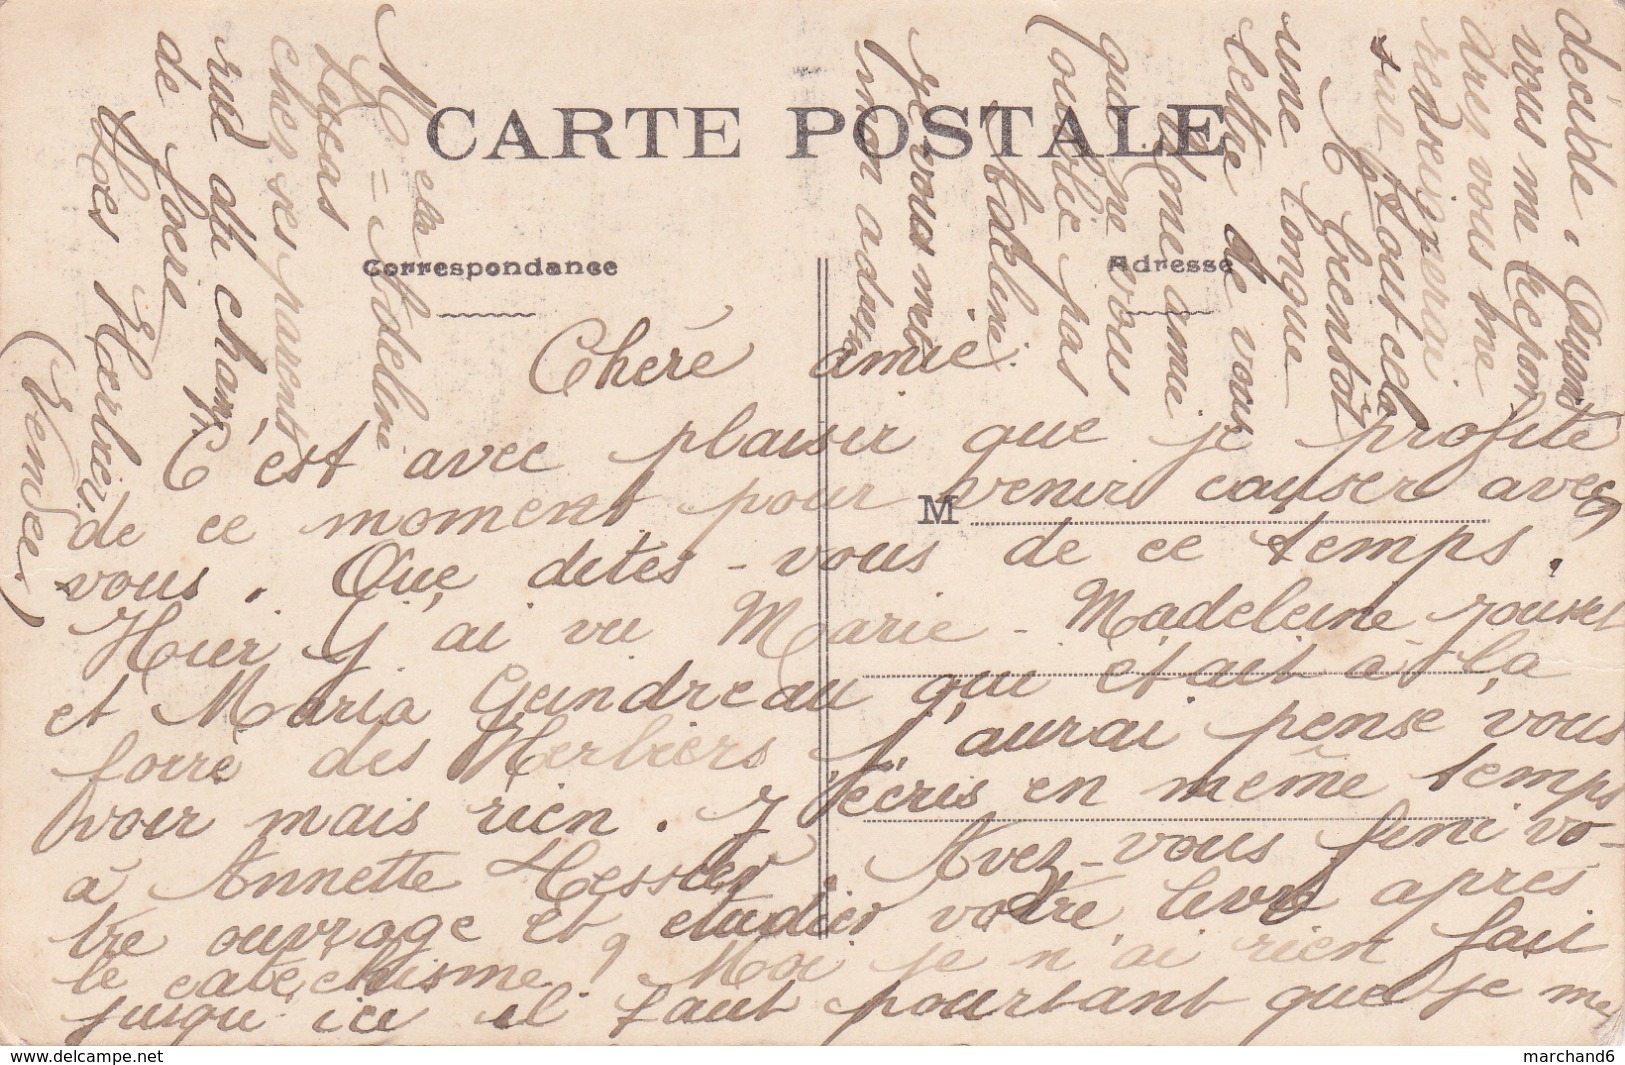 CARTE POSTALE
Correspondance
Adresse
M
Chère amie.
C'est avec plaisir que je profite
de ce moment pour venir causer avec
vous. Que dites-vous de ce temps.
Hier j'ai vu Marie-Madeleine
et Maria Gendreau qui était à la
foire des Herbiers j'aurai pensé vous
voir mais rien. J'écris en même temps
à Annette Hessler. Avez-vous fini vo-
tre ouvrage et étudier votre livre après
le catéchisme, Moi je n'ai rien fait
jusqu'ici il faut pourtant que je me
décide, Ayant
vous me repon
drez vous me
renseignerai
sur tout cela
A bientôt
une longue
lettre de vous
Une amie
qui ne vous
oublie pas
Adeline
Je vous met
mon adresse
Melle Adeline
Lucas
chez ses parents
rue du champ
de foire
Les Herbiers
(Vendée)
www.delcampe.net
marchand6